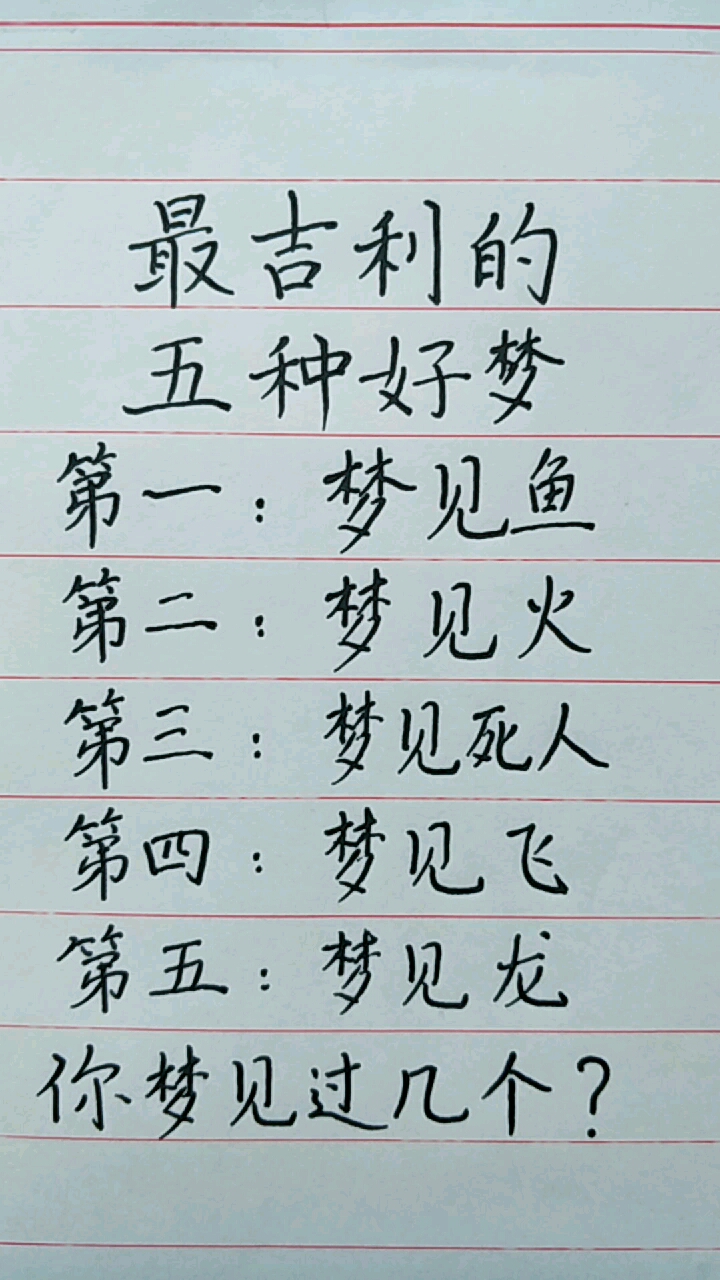 最吉利的
五种好梦
第一：梦见鱼
第二：梦见火
第三：梦见死人
第四：梦见飞
第五：梦见龙
你梦见过几个？